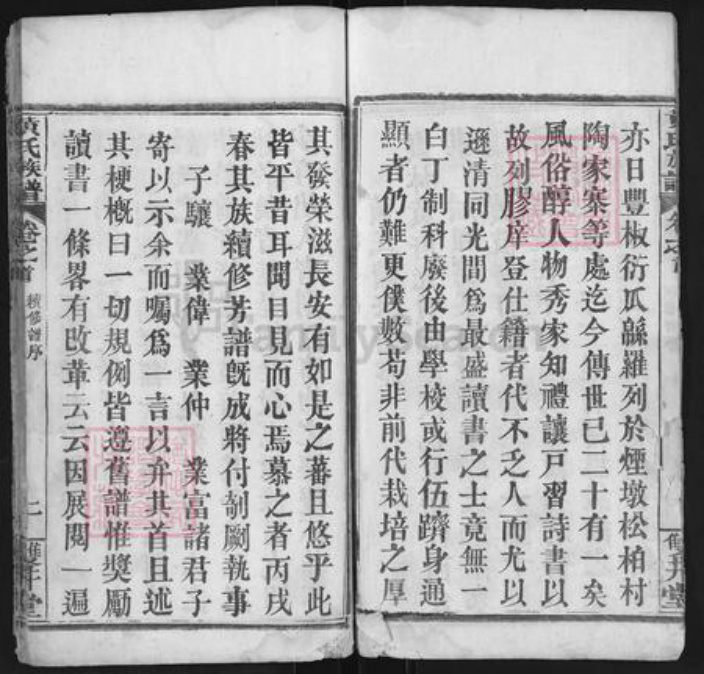 亦日豐椒衍瓜緜羅列於煙墩松柏村
陶家寨等處迄今傳世已二十有一矣
風俗醇人物秀家知禮讓戸習詩書以
故列膠庠登仕籍者代不乏人而尤以
遜清同光間爲最盛讀書之士竟無一
白丁制科廢後由學校或行伍躋身通
顯者仍難更僕數苟非前代栽培之厚
其發榮滋長安有如是之蕃且悠乎此
皆平昔耳聞目見而心焉慕之者丙戌
春其族續修芳譜旣成將付剞劂執事
子驤 業偉 業仲 業富諸君子
寄以示余而囑爲一言以弁其首且述
其梗槪曰一切規例皆遵舊譜惟獎勵
讀書一條畧有改革云云因展閱一遍
黃氏族譜 卷之首 續修譜序 二 雙井堂
FamilySearch